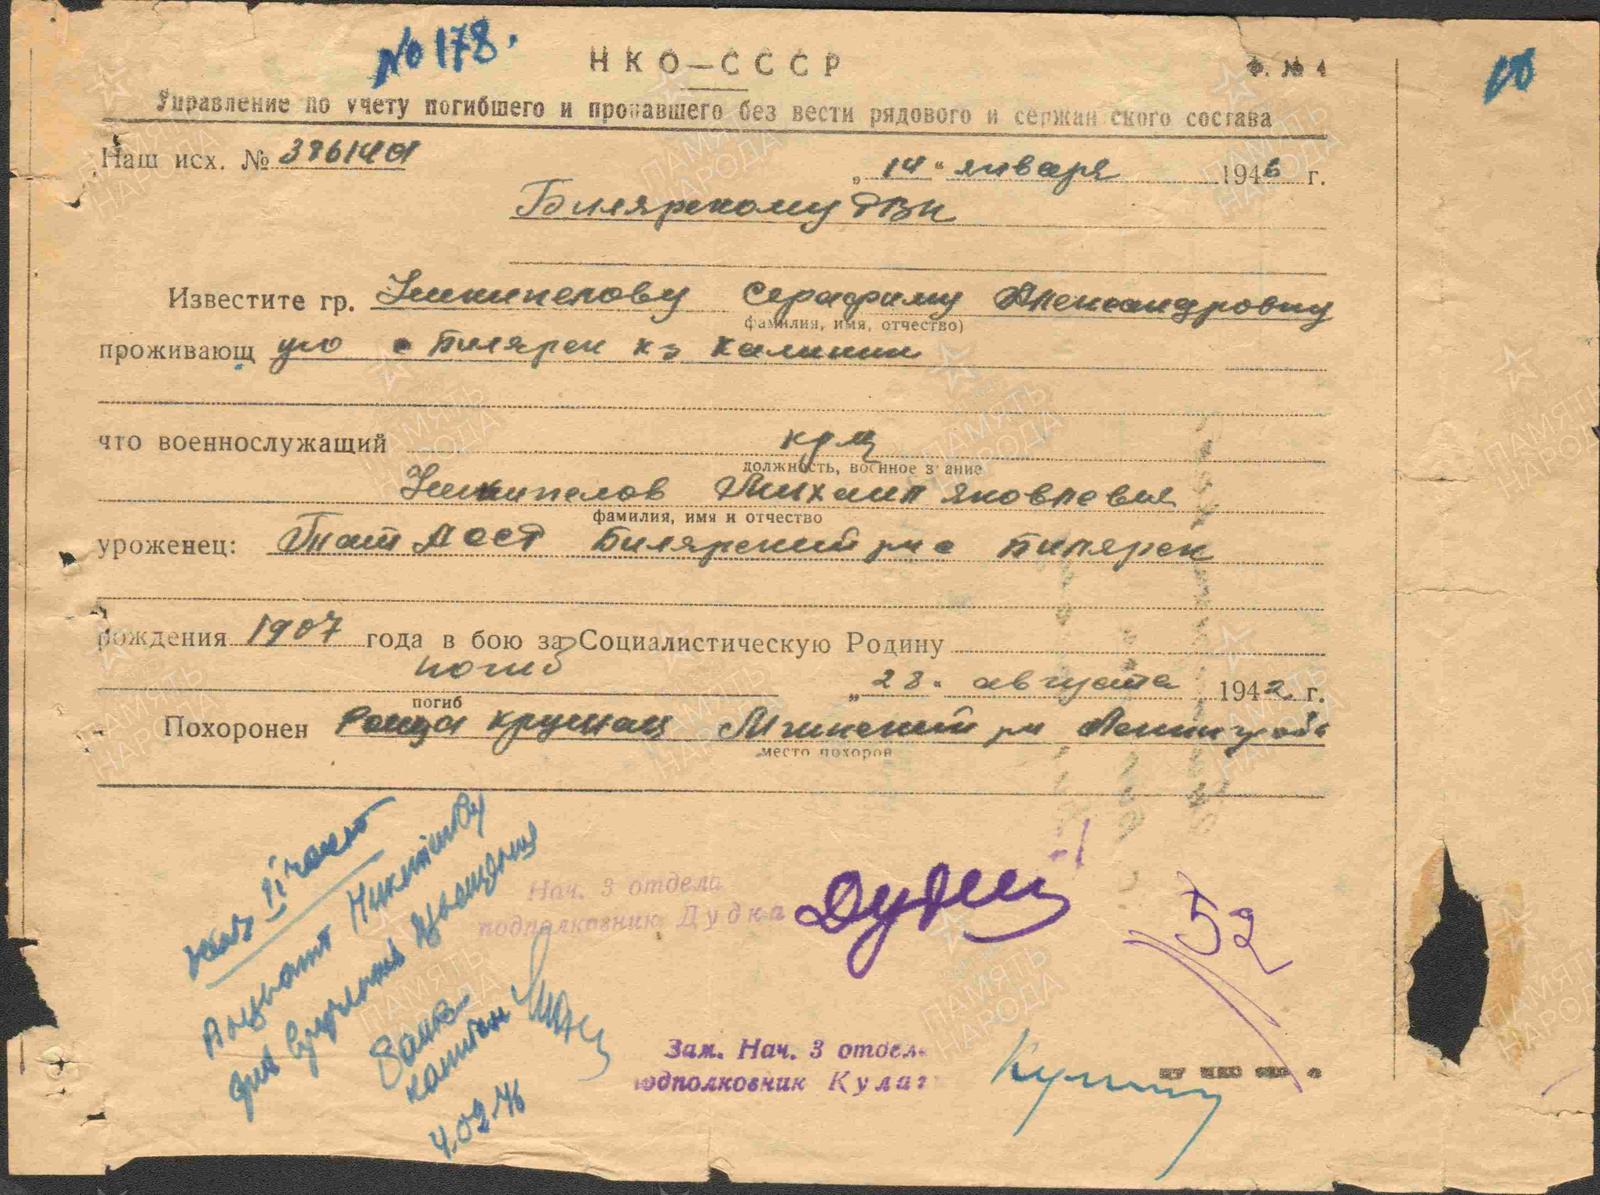 № 178.
НКО—СССР
Ф. № 4
Управление по учету погибшего и пропавшего без вести рядового и сержантского состава
Наш исх. №
„14" января 1946 г.
Билярскому РВК
Известите гр. Серафиму Александровну
(фамилия, имя, отчество)
проживающ ую с Билярск к-з Калинин
что военнослужащий кр-ц
должность, военное звание
Михаил Яковлевич
фамилия, имя и отчество
уроженец: Билярский р-н с Билярск
рождения 1907 года в бою за Социалистическую Родину
погиб „28" августа 1942 г.
погиб
Похоронен Роща Круглая Мгинский р-н Ленингр обл
место похорон
Нач. 3 отдела
подполковник Дудка
52
Зам. Нач. 3 отдела
подполковник
капитан
4.02.46